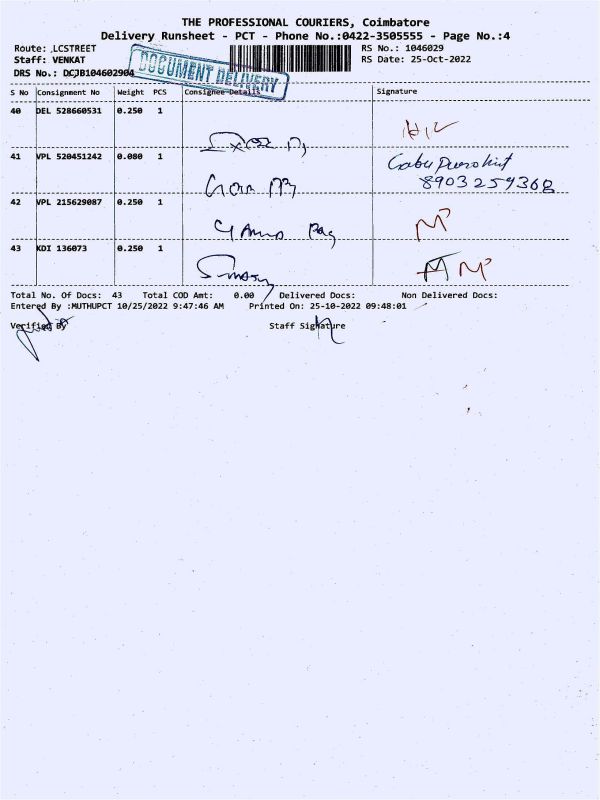 THE PROFESSIONAL COURIERS, Coimbatore
Delivery Runsheet - PCT - Phone No.:0422-3505555 - Page No.:4
Route: .LCSTREET
RS No.: 1046029
Staff: VENKAT
RS Date: 25-Oct-2022
DRS No.: DCJB104602904
DOCUMENT DELIVERY
S No Consignment No Weight PCS Consignee Details Signature
40 DEL 528660531 0.250 1
41 VPL 520451242 0.080 1
8903259368
42 VPL 215629087 0.250 1
43 KDI 136073 0.250 1
Total No. Of Docs: 43 Total COD Amt: 0.00 Delivered Docs: Non Delivered Docs:
Entered By :MUTHUPCT 10/25/2022 9:47:46 AM Printed On: 25-10-2022 09:48:01
Verified By Staff Signature